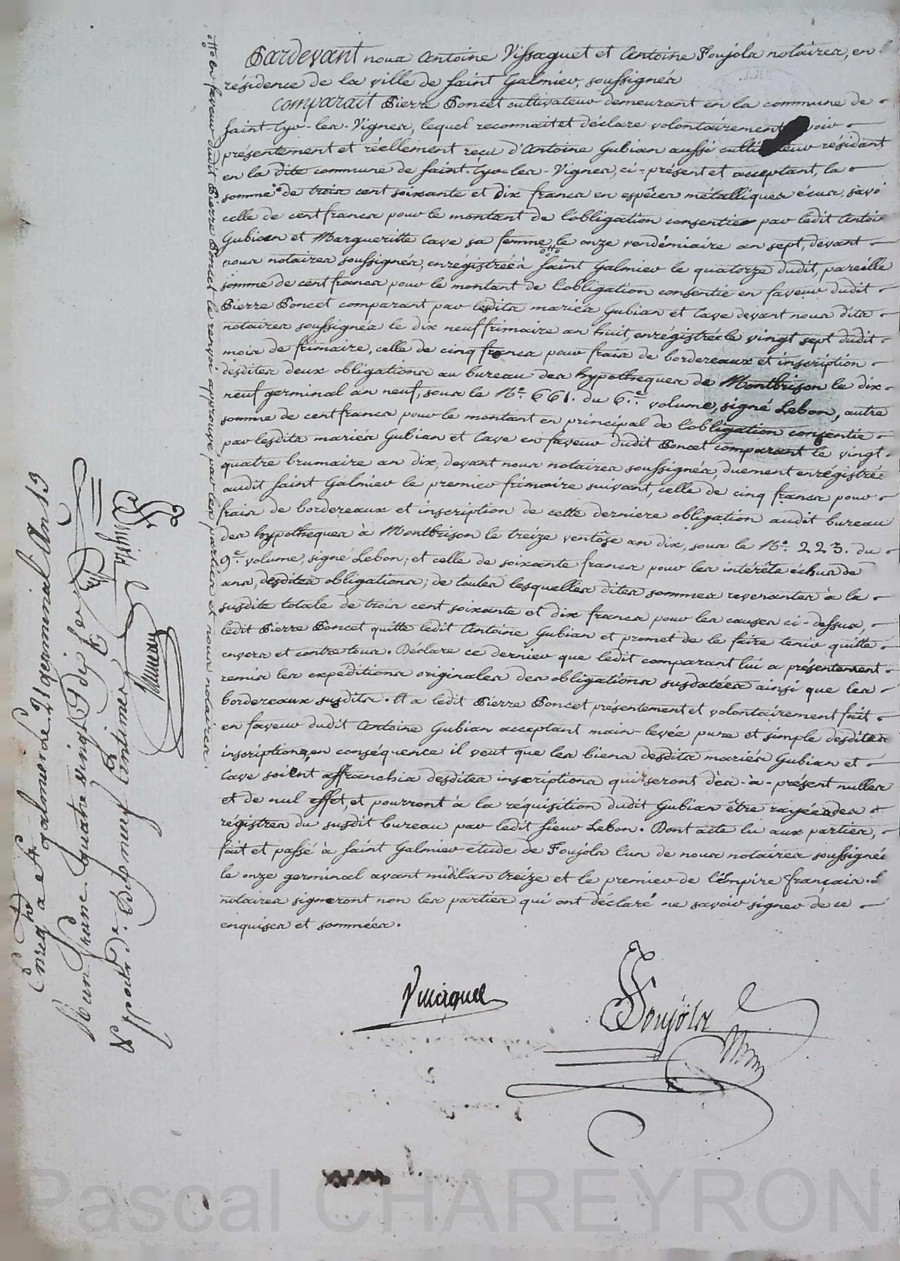 Pardevant nous Antoine Vissaguet et Antoine Foujols notaires, en
résidence de la ville de Saint Galmier, soussignés
comparait Pierre Poncet cultivateur demeurant en la commune de
Saint-Cyr-les-Vignes, lequel reconnait et déclare volontairement avoir
présentement et réellement reçu d'Antoine Gubian aussi cultivateur résidant
en la dite commune de Saint-Cyr-les-Vignes, ci-présent et acceptant, la
somme de trois cent soixante et dix francs en espèces métalliques écus, savo
celle de cent francs pour le montant de l'obligation consentie par ledit Antoi
Gubian et Margueritte Cave sa femme, le onze vendémiaire an sept, devant
nous notaires soussignés, enrégistrée à Saint Galmier le quatorze dudit, pareille
somme de cent francs pour le montant de l'obligation consentie en faveur dudit
Pierre Poncet comparant par lesdits mariés Gubian et Cave devant nous dits
notaires soussignés le dix neuf frimaire an huit, enrégistré le vingt sept dudit
mois de frimaire, celle de cinq francs pour frais de bordereaux et inscription
desdites deux obligations au bureau des hypothèques de Montbrison le dix
neuf germinal an neuf, sous le No. 661. du 6e. volume, signé Lebon, autre
somme de cent francs pour le montant en principal de l'obligation consentie
par lesdits mariés Gubian et Cave en faveur dudit Poncet comparant le vingt
quatre brumaire an dix, devant nous notaires soussignés, duement enrégistrée
audit Saint Galmier le premier frimaire suivant, celle de cinq francs pour
frais de bordereaux et inscription de cette derniere obligation audit bureau
des hypothèques à Montbrison le treize ventôse an dix, sous le No. 223. du
9e. volume, signé Lebon; et celle de soixante francs pour les intérêts échus de
ans, desdites obligations; de toutes lesquelles dites sommes revenantes à la
susdite totale de trois cent soixante et dix francs pour les causes ci-dessus,
ledit Pierre Poncet quitte ledit Antoine Gubian et promet de le faire tenir quitte
envers et contre tous. Déclare ce dernier que ledit comparant lui a présentement
remis les expéditions originales des obligations susdatées ainsi que les
bordereaux susdits. Et a ledit Pierre Poncet présentement et volontairement fait
en faveur dudit Antoine Gubian acceptant main-levée pure et simple desdites
inscriptions, en conséquence il veut que les biens desdits mariés Gubian et
Cave soient affranchis desdites inscriptions qui seront dès-à-présent nulles
et de nul effet, et pourront à la réquisition dudit Gubian être rayées des
registres du susdit bureau par ledit sieur Lebon. Dont acte lu aux parties,
fait et passé à Saint Galmier étude de Foujols l'un de nous notaires soussignés
le onze germinal avant midi an treize et le premier de l'Empire français
notaires signeront non les parties qui ont déclaré ne savoir signer de ce
enquises et sommées.
Vissaguet
Foujols
en faveur dudit Pierre Poncet le renvoi approuvé par les parties et nous notaires.
Enregtré à St galmier Le 21 germinal An 13
Pascal CHAREYRON